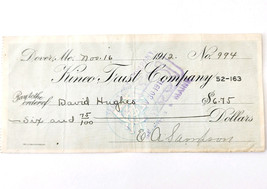 Dover, Me. Nov. 16 1912 No. 994
Kineo Trust Company 52-163
Pay to the order of David Hughes $6.75
Six and 75/100 Dollars
E. A. Sampson